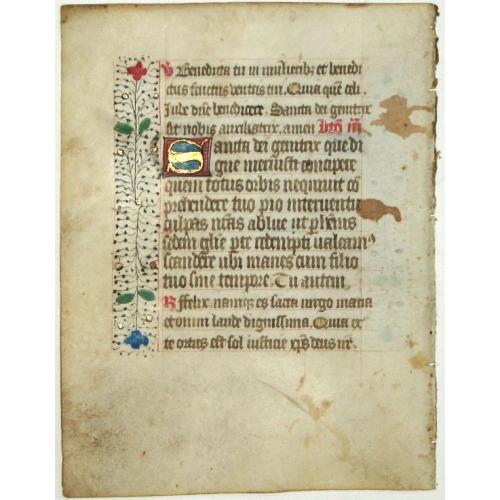 V Benedicta tu in mulieribz et benedi
ctus fructus ventris tui. Quia que celi
Iube dne benedicere. Sancta dei genitrix
sit nobis auxiliatrix. amen
Sancta dei genitrix que di
gne meruisti concipere
quem totus orbis nequiuit co
prehendere tuo pio interuentu
culpas nras ablue ut phennis
sedem glie p te redempti ualeam9
scandere ubi manes cum filio
tuo sine tempore. Tu autem
R felix namqz es sacra uirgo maria
et omni laude dignissima. Quia ex
te ortus est sol iusticie xps deus nr.